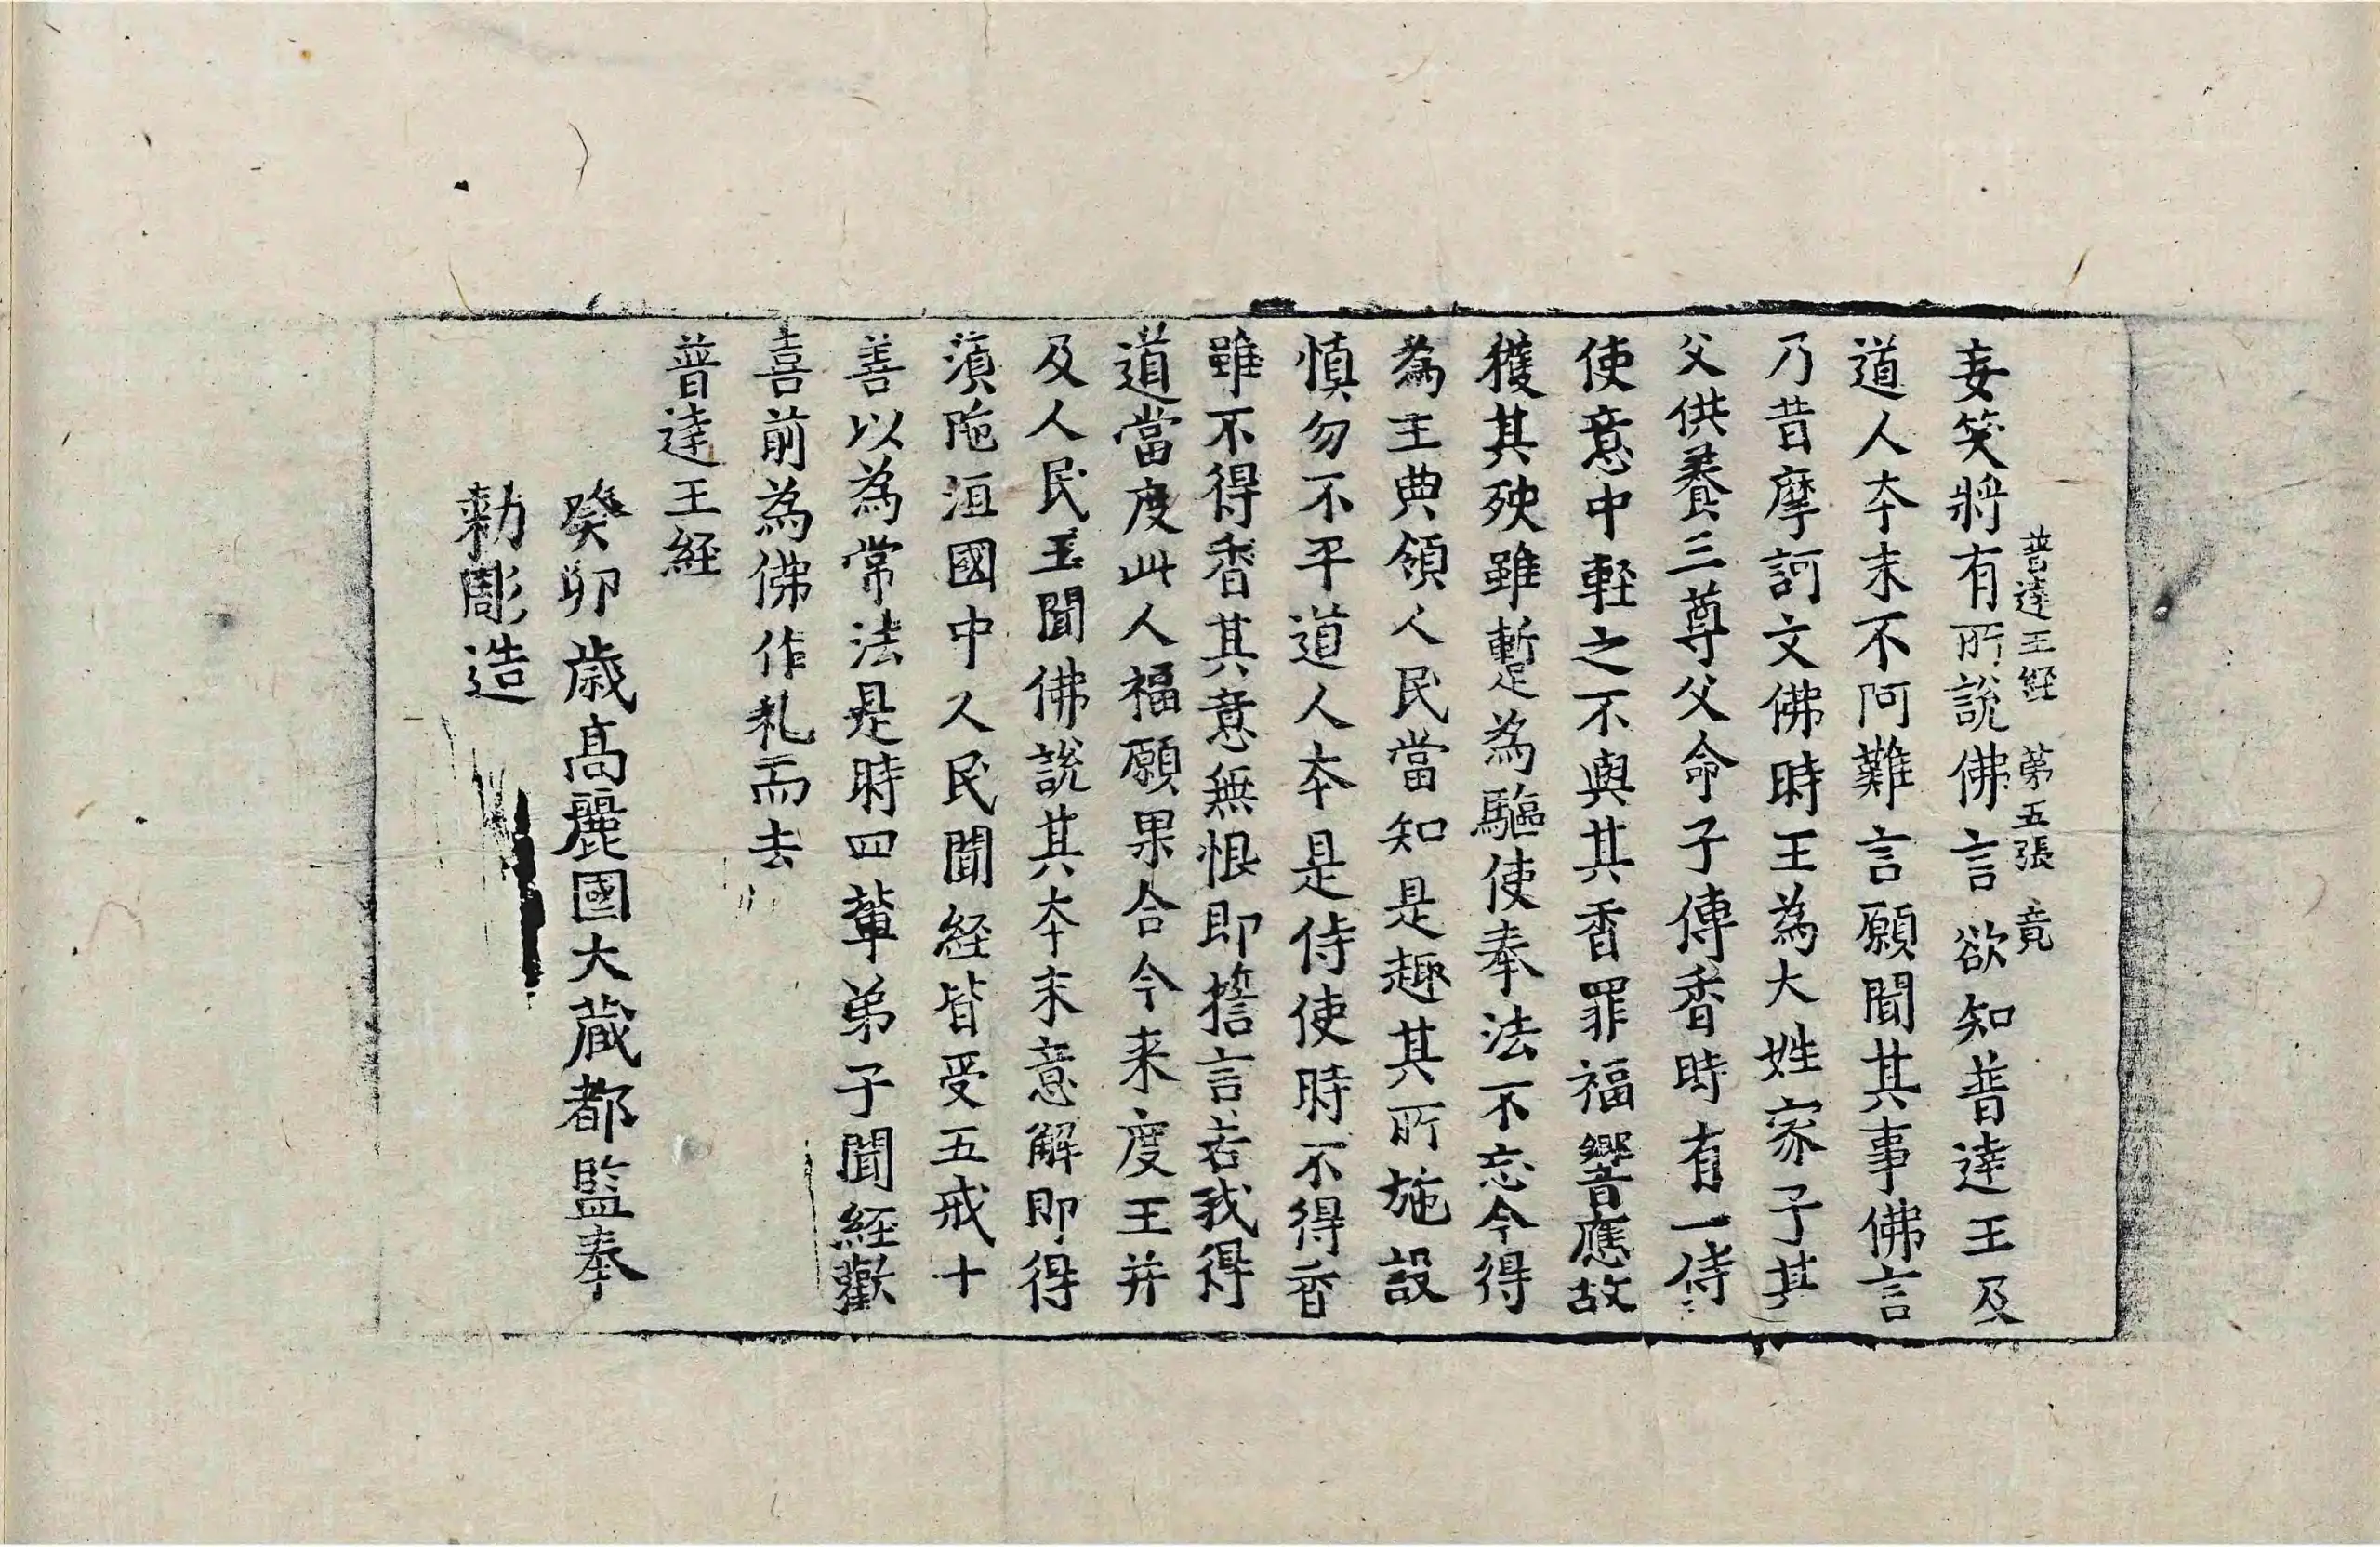 妄笑將有所說佛言欲知普達王及
普達王経 第五張 竟
道人本末不阿難言願聞其事佛言
乃昔摩訶文佛時王為大姓家子其
父供養三尊父命子傳香時有一侍
使意中軽之不與其香罪福響應故
獲其殃雖暫為驅使奉法不忘今得
為王典領人民當知是趣其所施設
慎勿不平道人本是侍使時不得香
雖不得香其意無恨即擔言若我得
道當度此人福願果合今来度王并
及人民王聞佛說其本末意解即得
湏陁洹國中人民聞経皆受五戒十
善以為常法是時四輩弟子聞経歡
喜前為佛作礼而去
普達王経
癸卯歳髙麗國大蔵都監奉
勑彫造